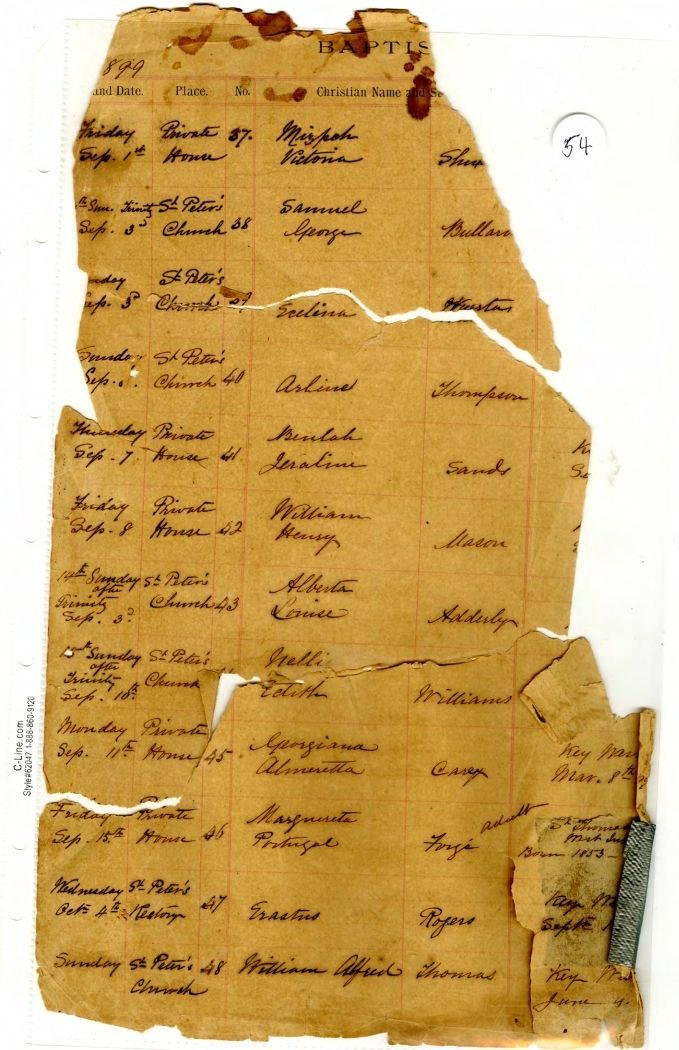 BAPTIS
1899
and Date. Place. No. Christian Name and S
Friday Private 37. Mizpah
Sep. 1st House Victoria
54
Sun. Trinity St Peter's Samuel
Sep. 3d Church 38 George Bullar
day St Peter's
Sep. 3d Church 39 Evelina
Sunday St Peter's
Sep. 3. Church 40 Arline Thompson
Thursday Private Beulah
Sep. 7 House 41 Jeraline Sands
Friday Private William
Sep. 8 House 42 Henry Mason
14th Sunday St Peter's Alberta
after
Trinity Church 43 Louise Adderly
Sep. 3d
15th Sunday St Peter's Nelli
after
Trinity Church Edith Williams
Sep. 10th
Monday Private Georgiana Key Wes
Sep. 11th House 45 Almeretta Carey Mar. 8th
Friday Private Marguereta adult St Thomas
West In
Sep. 15th House 46 Portugal Forgé Born 1853 -
Wednesday St Peter's Key W
Oct. 4th Rectory 47 Erastus Rogers Sept. 1
Sunday St Peter's 48 William Alfred Thomas Key Wes
Church June 4.
C-Line.com
Style#62047 1-888-860-9120